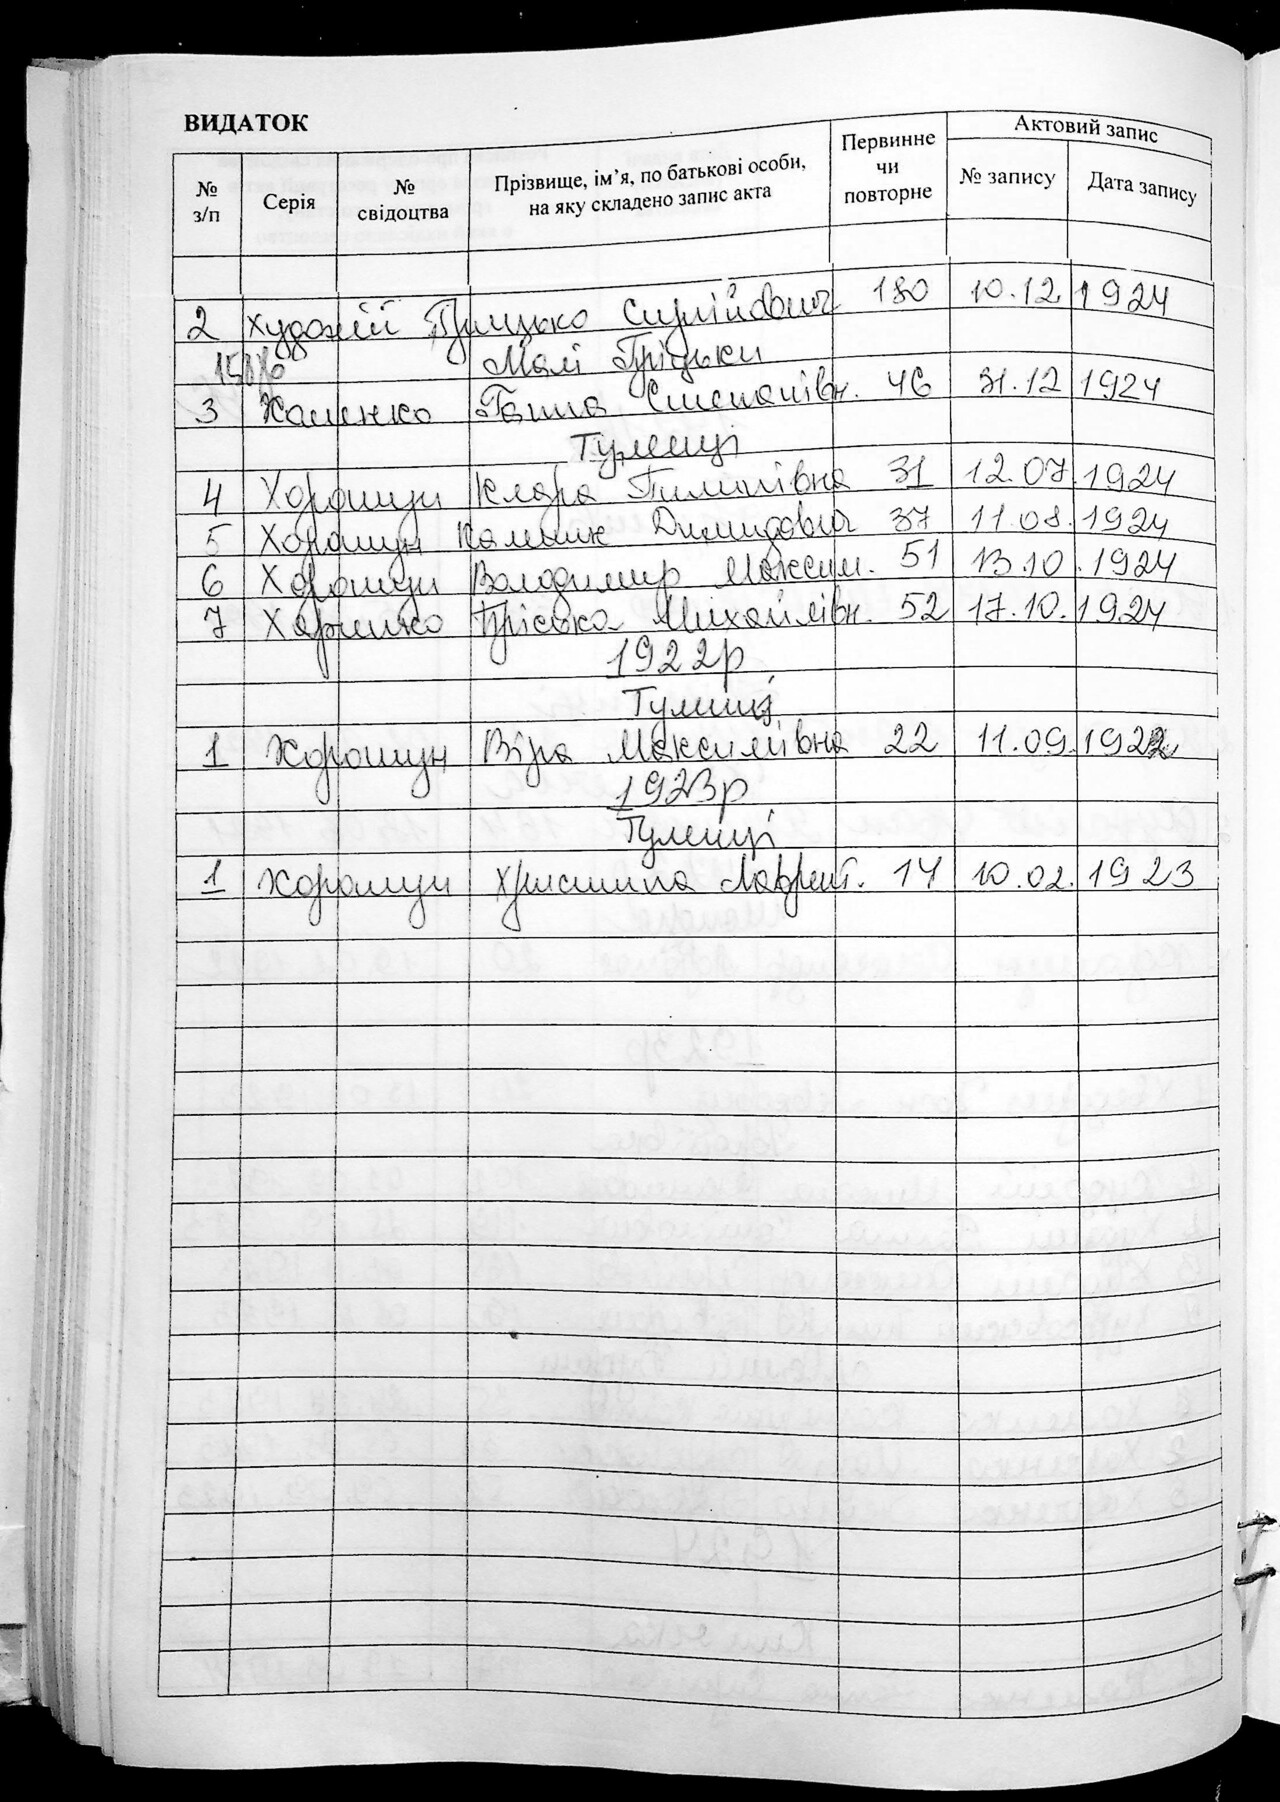 ВИДАТОК
№ з/п Серія № свідоцтва Прізвище, ім’я, по батькові особи, на яку складено запис акта Первинне чи повторне Актовий запис № запису Дата запису
2 Худолій Грицько Сергійович 180 10.12 1924
Малі Пріцьки
3 Хоменко Ганна Степанівн. 46 31.12 1924
Тулинці
4 Хорошун Клара Пилипівна 31 12.07.1924
5 Хорошун Калинік Димидович 37 11.08.1924
6 Хорошун Володимир Максим. 51 13.10.1924
7 Харченко Пріська Михайлівн. 52 17.10.1924
1922р
Тулинці
1 Хорошун Віра Максимівна 22 11.09.1922
1923р
Тулинці
1 Хорошун Христина Лаврент. 14 10.02.1923